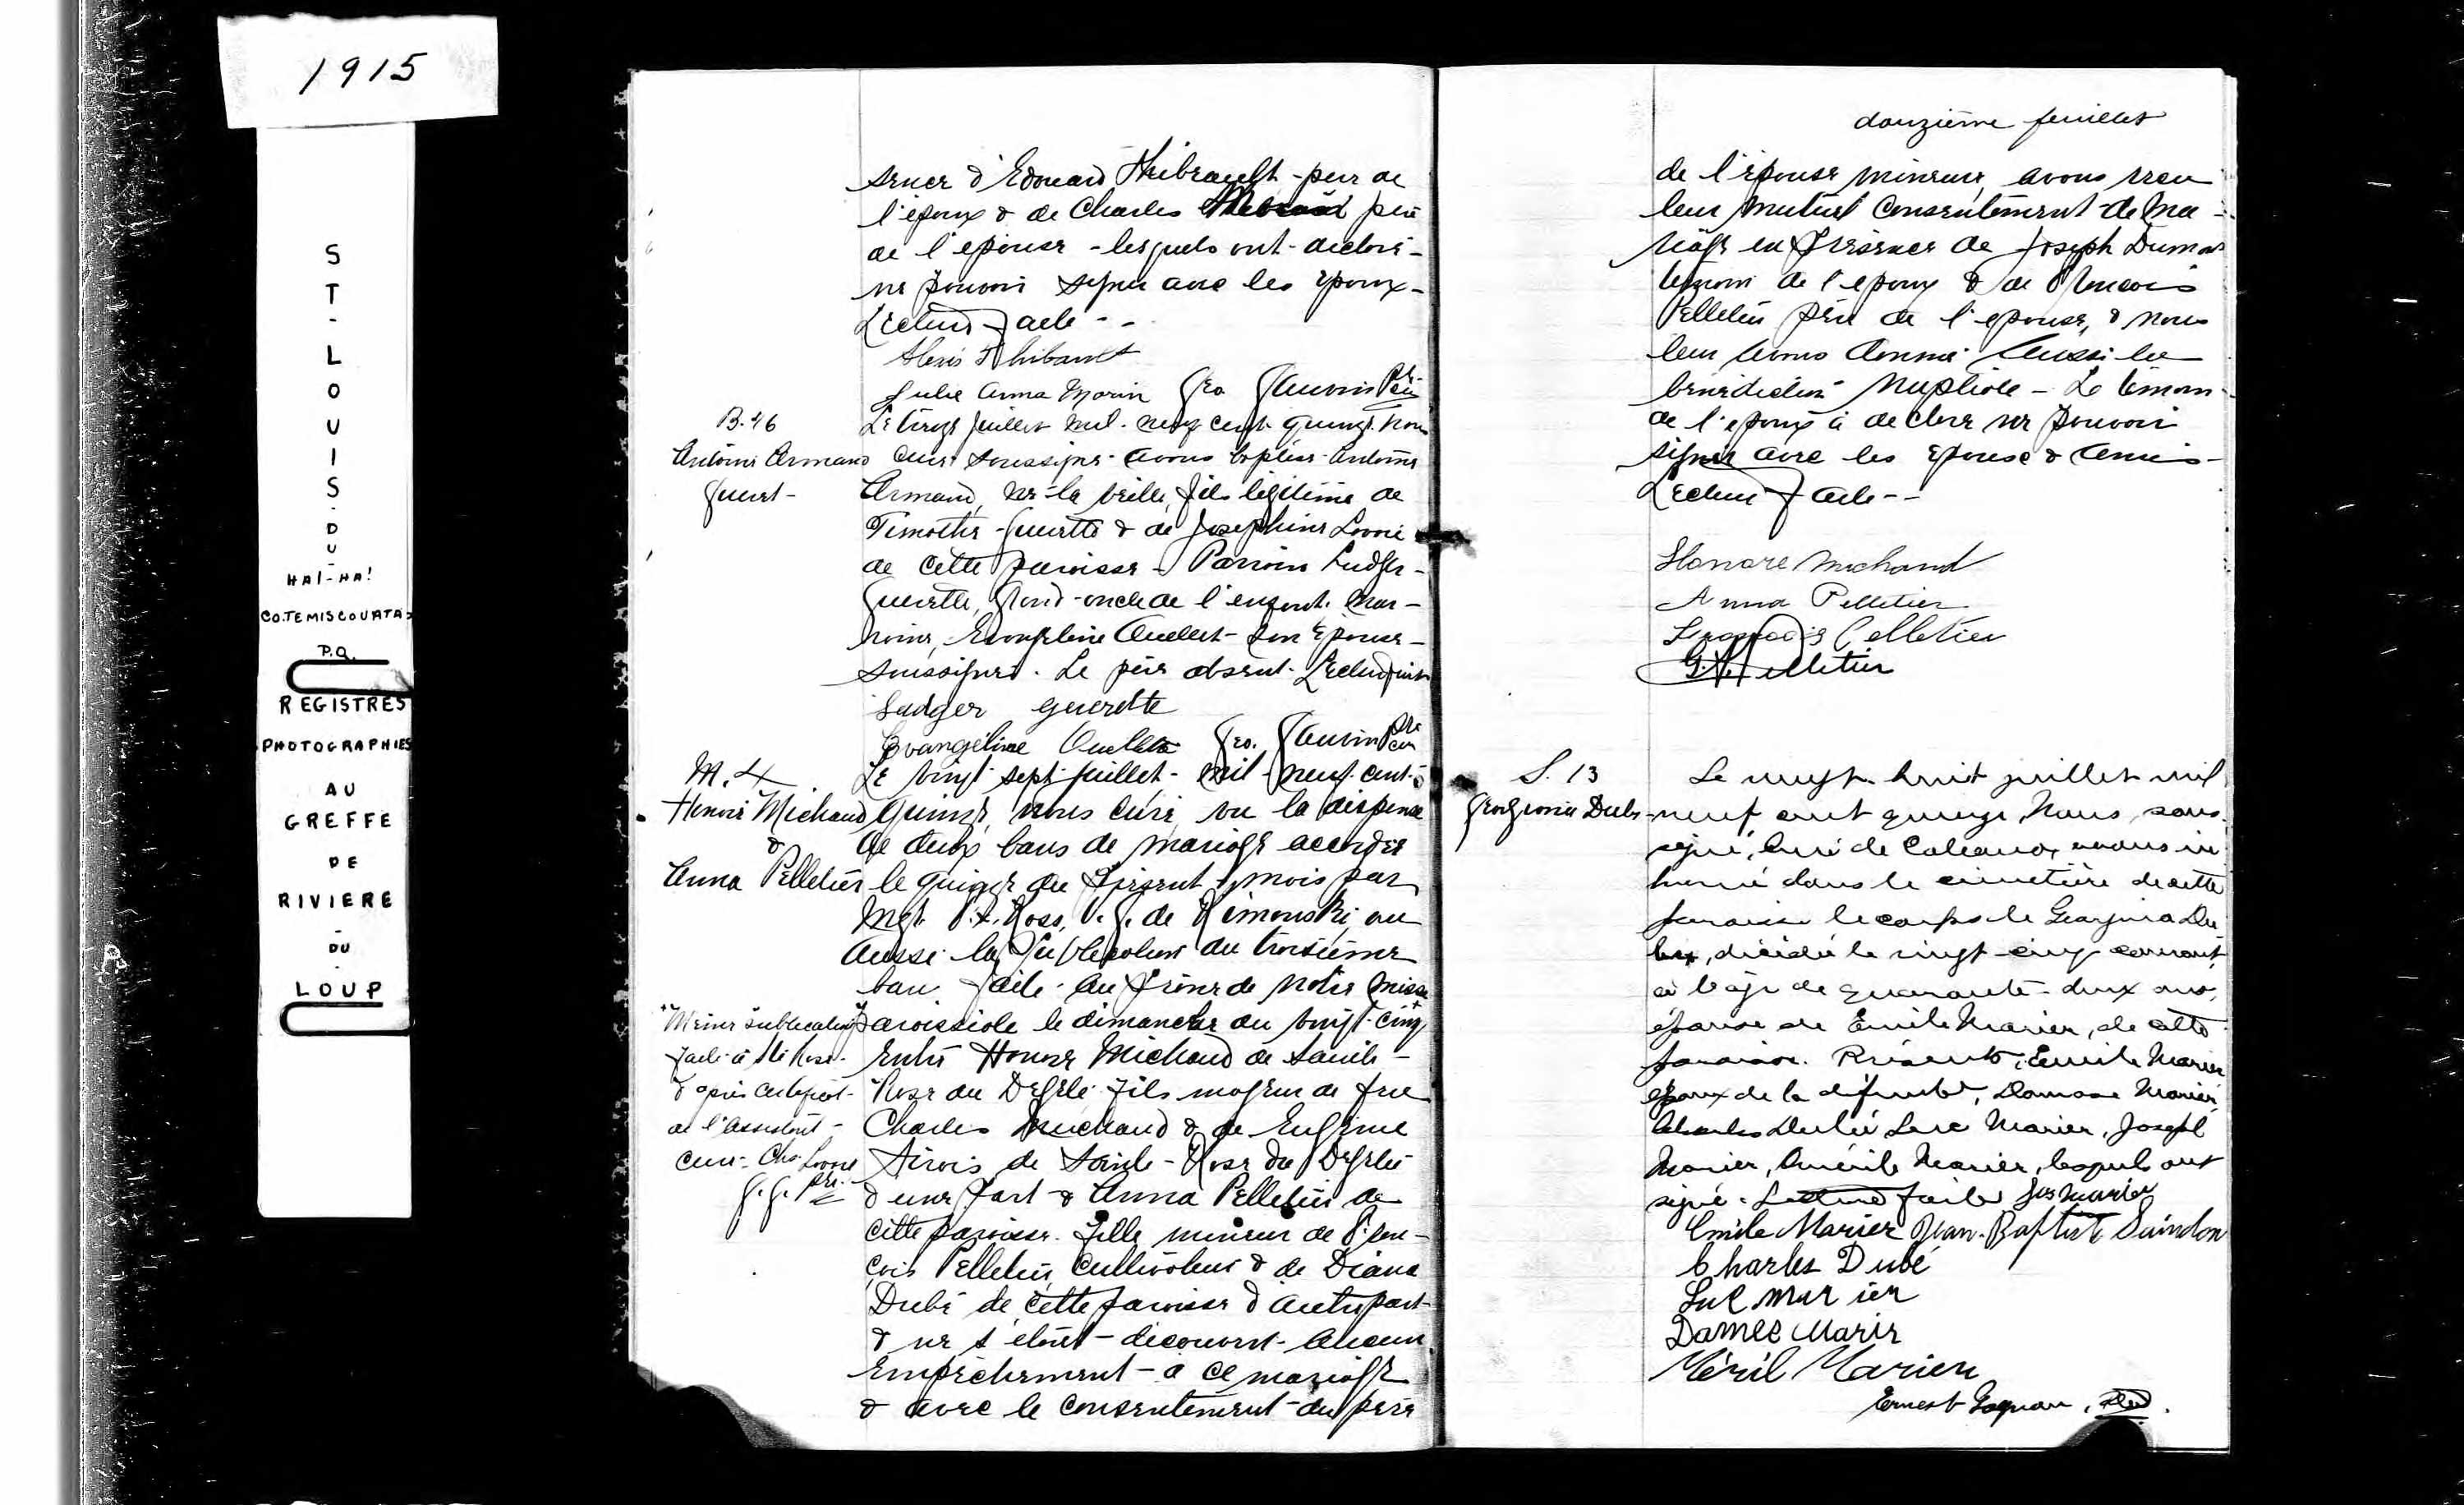 1915
ST-LOUIS-DU-
HA!-HA!
CO.TEMISCOUATA
P.Q.
REGISTRES
PHOTOGRAPHIES
AU
GREFFE
DE
RIVIERE
-
DU
-
LOUP
sence d'Edouard Thibeault - père de
l'époux & de Charles père
de l'épouse - lesquels ont déclaré
ne pouvoir signer avec les époux -
Lecture faite - -
Alexis Thibault
Julie Anna Morin Geo. Gauvin Ptre Curé
B. 46
Antoine Armand
Gueret -
Le treize juillet mil - neuf cent - quinze, nous
curé soussigné avons baptisé Antoine
Armand, né la veille, fils légitime de
Timothée Guerette & de Joséphine Lavoie
de cette paroisse - Parrain Ludger -
Guerette, grand-oncle de l'enfant. Mar -
raine, Evangéline Ouellet - son épouse -
soussignés. Le père absent. Lecture faite
Ludger Guerette
Evangéline Ouellette Geo. Gauvin Ptre Curé
M. 4
Honoré Michaud
&
Anna Pelletier
Le vingt sept juillet - mil - neuf - cent -
quinze, nous curé, vu la dispense
de deux bans de mariage accordée
le quinze du présent mois par
Mgr. F.X. Ross, V.G. de Rimouski, vu
aussi la publication du troisième
ban faite au prône de notre messe
paroissiale le dimanche du vingt-cinq
"Même publication
faite à Ste Rose -
d'après certificat -
de l'assistant -
curé - Chs Lavoie
G.G. Ptre
entre Honoré Michaud de Sainte -
Rose du Dégelé fils majeur de feu
Charles Michaud & de Eugénie
Sirois de Sainte-Rose du Dégelé
d'une part & Anna Pelletier de
cette paroisse. Fille mineure de Fran -
çois Pelletier, cultivateur & de Diana
Dubé de cette paroisse d'autre part -
& ne s'étant - découvert - aucun
empêchement - à ce mariage
& avec le consentement - du père
douzième feuillet
de l'épouse mineure, avons reçu
leur mutuel consentement de ma -
riage en présence de Joseph Dumas
témoin de l'époux & de François
Pelletier père de l'épouse, & nous
leur avons donné aussi la
bénédiction nuptiale - Le témoin
de l'époux a déclaré ne pouvoir
signer avec les épouse & amis -
Lecture faite - -
Honoré Michaud
Anna Pelletier
François Pelletier
G. A. Pelletier
S. 13
Georgina Dubé
Le vingt - huit juillet mil
neuf cent quinze, Nous, sous-
signé, curé de Cabano, avons in
humé dans le cimetière de cette
paroisse le corps de Georgina Du
bé, décédée le vingt - cinq courant
à l'âge de quarante - deux ans,
épouse de Emile Marier, de cette
paroisse. Présents: Emile Marier
époux de la défunte, Damase Marier,
Charles Dubé, Luc Marier, Joseph
Marier, Amérile Marier, lesquels ont
signé. Lecture faite Jos Marier
Emile Marier Jean-Baptiste Saindon
Charles Dubé
Luc Mar ier
Damee Marir
Méril Marier
Ernest Gagnon, Ptre.